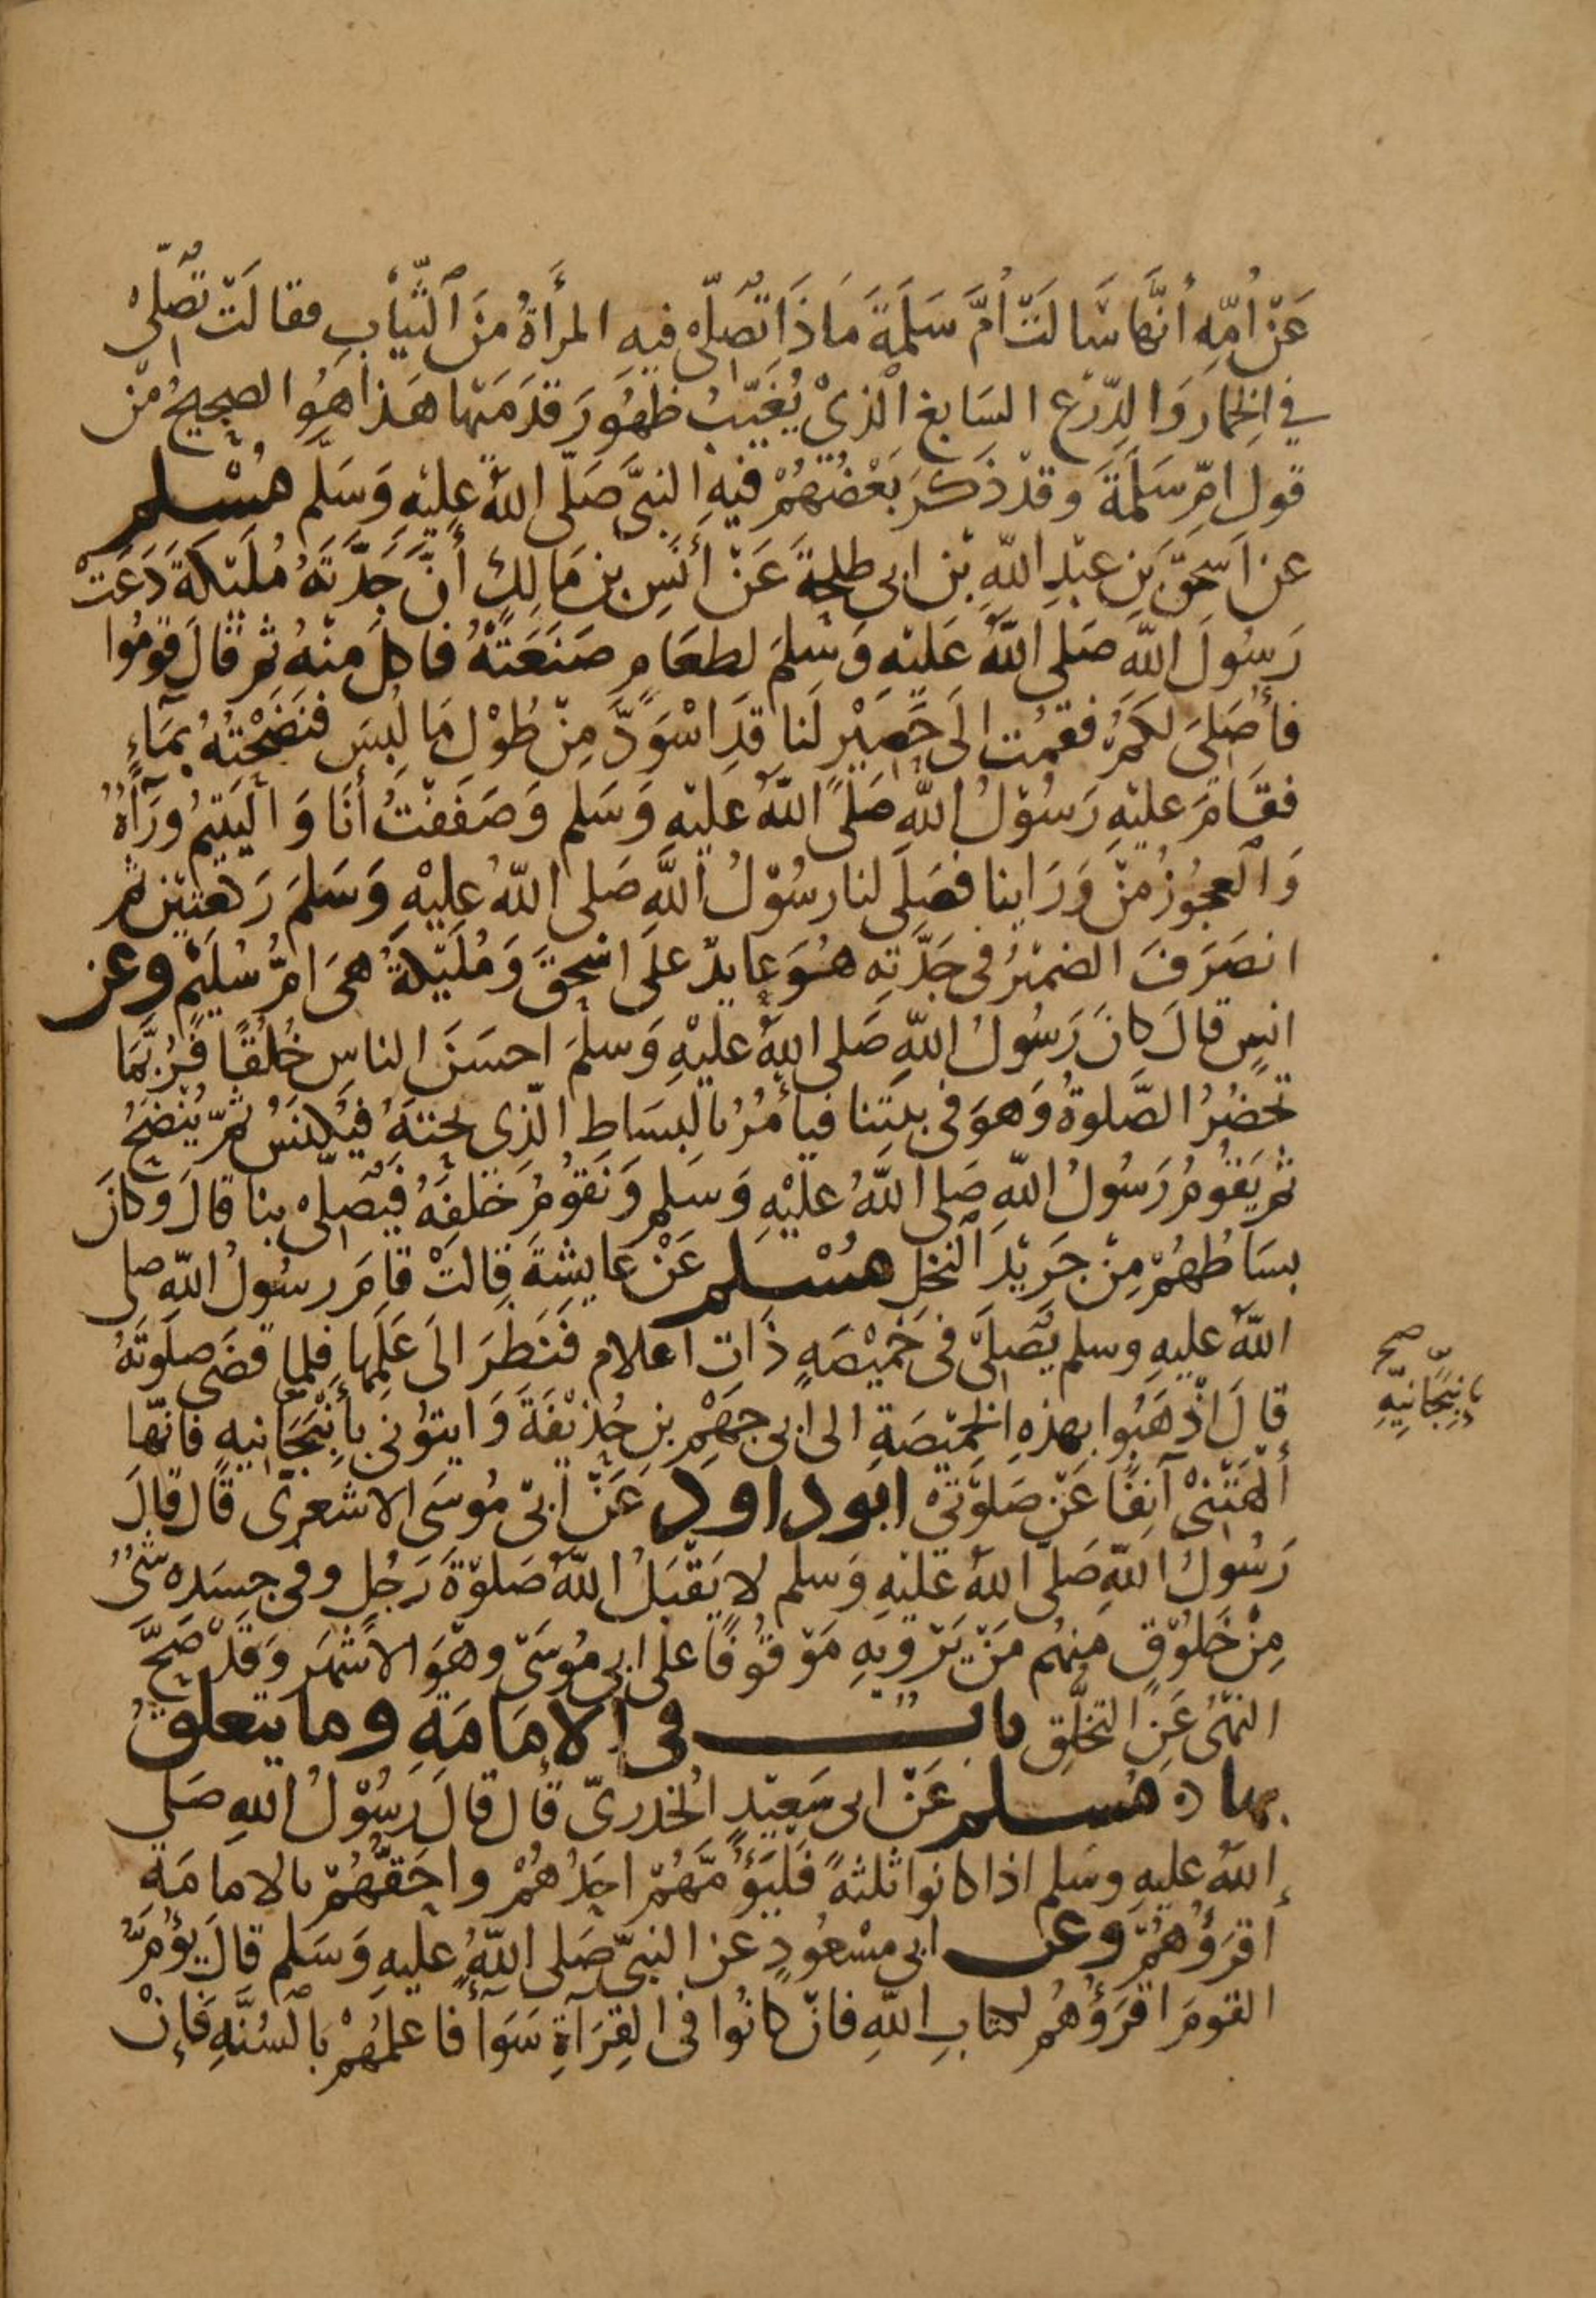 عَنْ اُمِّهِ أنَّها سَّالَتْ أُمَّ سَلَمَةَ مَا ذَا تُصَلِّى فيهِ المرأةُ مِنَ الثِّيَابِ فقالَتْ تُصَلِّى
في الخِمَارِ وَالدِّرْعِ السَابغِ الَّذِىْ يُغَيِّبُ ظُهُورَ قَدَمَيْهَا هَذَا هُوَ الصحِيحُ مِنْ
قولِ امِّ سَلَمَةَ وقدْ ذَكَرَ بَعْضُهُمْ فيهِ النبىَّ صَلَّى اللّهُ عليْهِ وَسَلَّم مُسْلم
عن اسحقَ بْنِ عبْدِ اللّهِ بْنِ ابى طلحةَ عَنْ أنَسِ بنِ مَالِكٍ أنَّ جَدَّتَهُ مُلَيْكَةَ دَعَتْ
رَسُولَ اللّه صَلى اللّهُ عَليْهِ وَسَلمَ لطعَامٍ صَنَعَتْهُ فاكلَ منْهُ ثم قالَ قُومُوا
فأُصَلىَ لكمْ فقمْت الَى حَصِيْرٍ لَنا قدِ اسْوَدَّ مِنْ طُوْلِ مَا لُبِسَ فنَضَحْتُهُ بمَاءٍ
فقامَ عليْهِ رَسُوْلُ اللّهِ صَلى اللّهُ عليْهِ وَسَلم وَصَفَفْتُ أنَا وَاليَتِيْمُ وَرَآءَهُ
وَالعجُوْزُ مِنْ وَرَاينا فصَلى لنا رسُوْلُ اللّهِ صَلى اللّهُ عليْهِ وَسَلمَ رَكعَتيْنِ ثم
انصَرَفَ الضميْرُ فى جَدَّتِهِ هُوَ عايدٌ علَى اسْحقَ وَمُلَيْكةُ هىَ امُّ سُلَيْمٍ وعن
انسٍ قالَ كانَ رَسُولُ اللّهِ صَلى اللّهُ عليْهِ وَسلمَ احسَنَ الناسِ خُلُقًا فَرُبَّمَا
تَحْضُرُ الصَّلوةُ وَهوَ فى بيْتِنا فيأمُرُ بالبسَاطِ الّذى تحتَهُ فيُكنَسُ ثمّ يُنْضَحُ
ثم يَقُومُ رَسُولُ اللّهِ صَلى اللّهُ عليْهِ وَسَلم وَنَقومُ خَلفَهُ فيُصَلى بنا قالَ وكانَ
بسَاطُهُمْ مِنْ جَرِيْدِ النخل مُسْلم عَنْ عايشةَ قالتْ قامَ رسُولُ اللّه صلى
اللّهُ عليهِ وسلم يُصَلىْ فى خَمِيْصَةٍ ذَاتِ اعلامٍ فَنَظَرَ الَى عَلَمِها فلما قضَى صلوتَهُ
قالَ اذْهَبُوا بهذِهِ الخَمِيْصَةِ الى ابى جَهْمِ بنِ حُذيْفَةَ وَايتوُنى بِأنبِجَانيهِ فانّها
ألهَتْنىْ آنِفًا عَنْ صَلوتىْ ابو داود عَنْ ابىْ مُوسَى الاشعرىّ قال قالَ
رَسُولُ اللّهِ صَلّى اللّهُ عَليْهِ وَسلم لا يَقْبَلُ اللّهُ صَلوةَ رَجُلٍ وفى جسَدِه شَىْءٌ
مِنْ خَلُوْقٍ منهُم مَنْ يَرْوِيهِ مَوْقُوفًا على ابى مُوسَى وهُوَ الاَشْهَر وَقَدْ صَحَّ
النهىُ عَنِ التخلُّقِ باب فى الامَامَةِ وما يتعلقُ
بها ٥ مُسلم عَنْ ابى سَعِيْدٍ الخدرىّ قال قالَ رَسُوْلُ اللهِ صَلى
اللّهُ عليهِ وسلم اذا كانوا ثلثةً فَليَؤُمَّهُمْ احَدُهُمْ واحَقُّهُمْ بالامامَةِ
اقرَؤُهُمْ وعن ابى مسْعُودٍ عن النبىّ صَلى اللّهُ عليهِ وَسَلم قالَ يؤُمُّ
القومَ اقرَؤُهُم لكتابِ اللّهِ فانْ كانُوا فى القِرَآةِ سَوَآءً فاعلمُهُمْ بالسُنَّةِ فَإنْ
صح
بِانبِجَانِيِّهِ